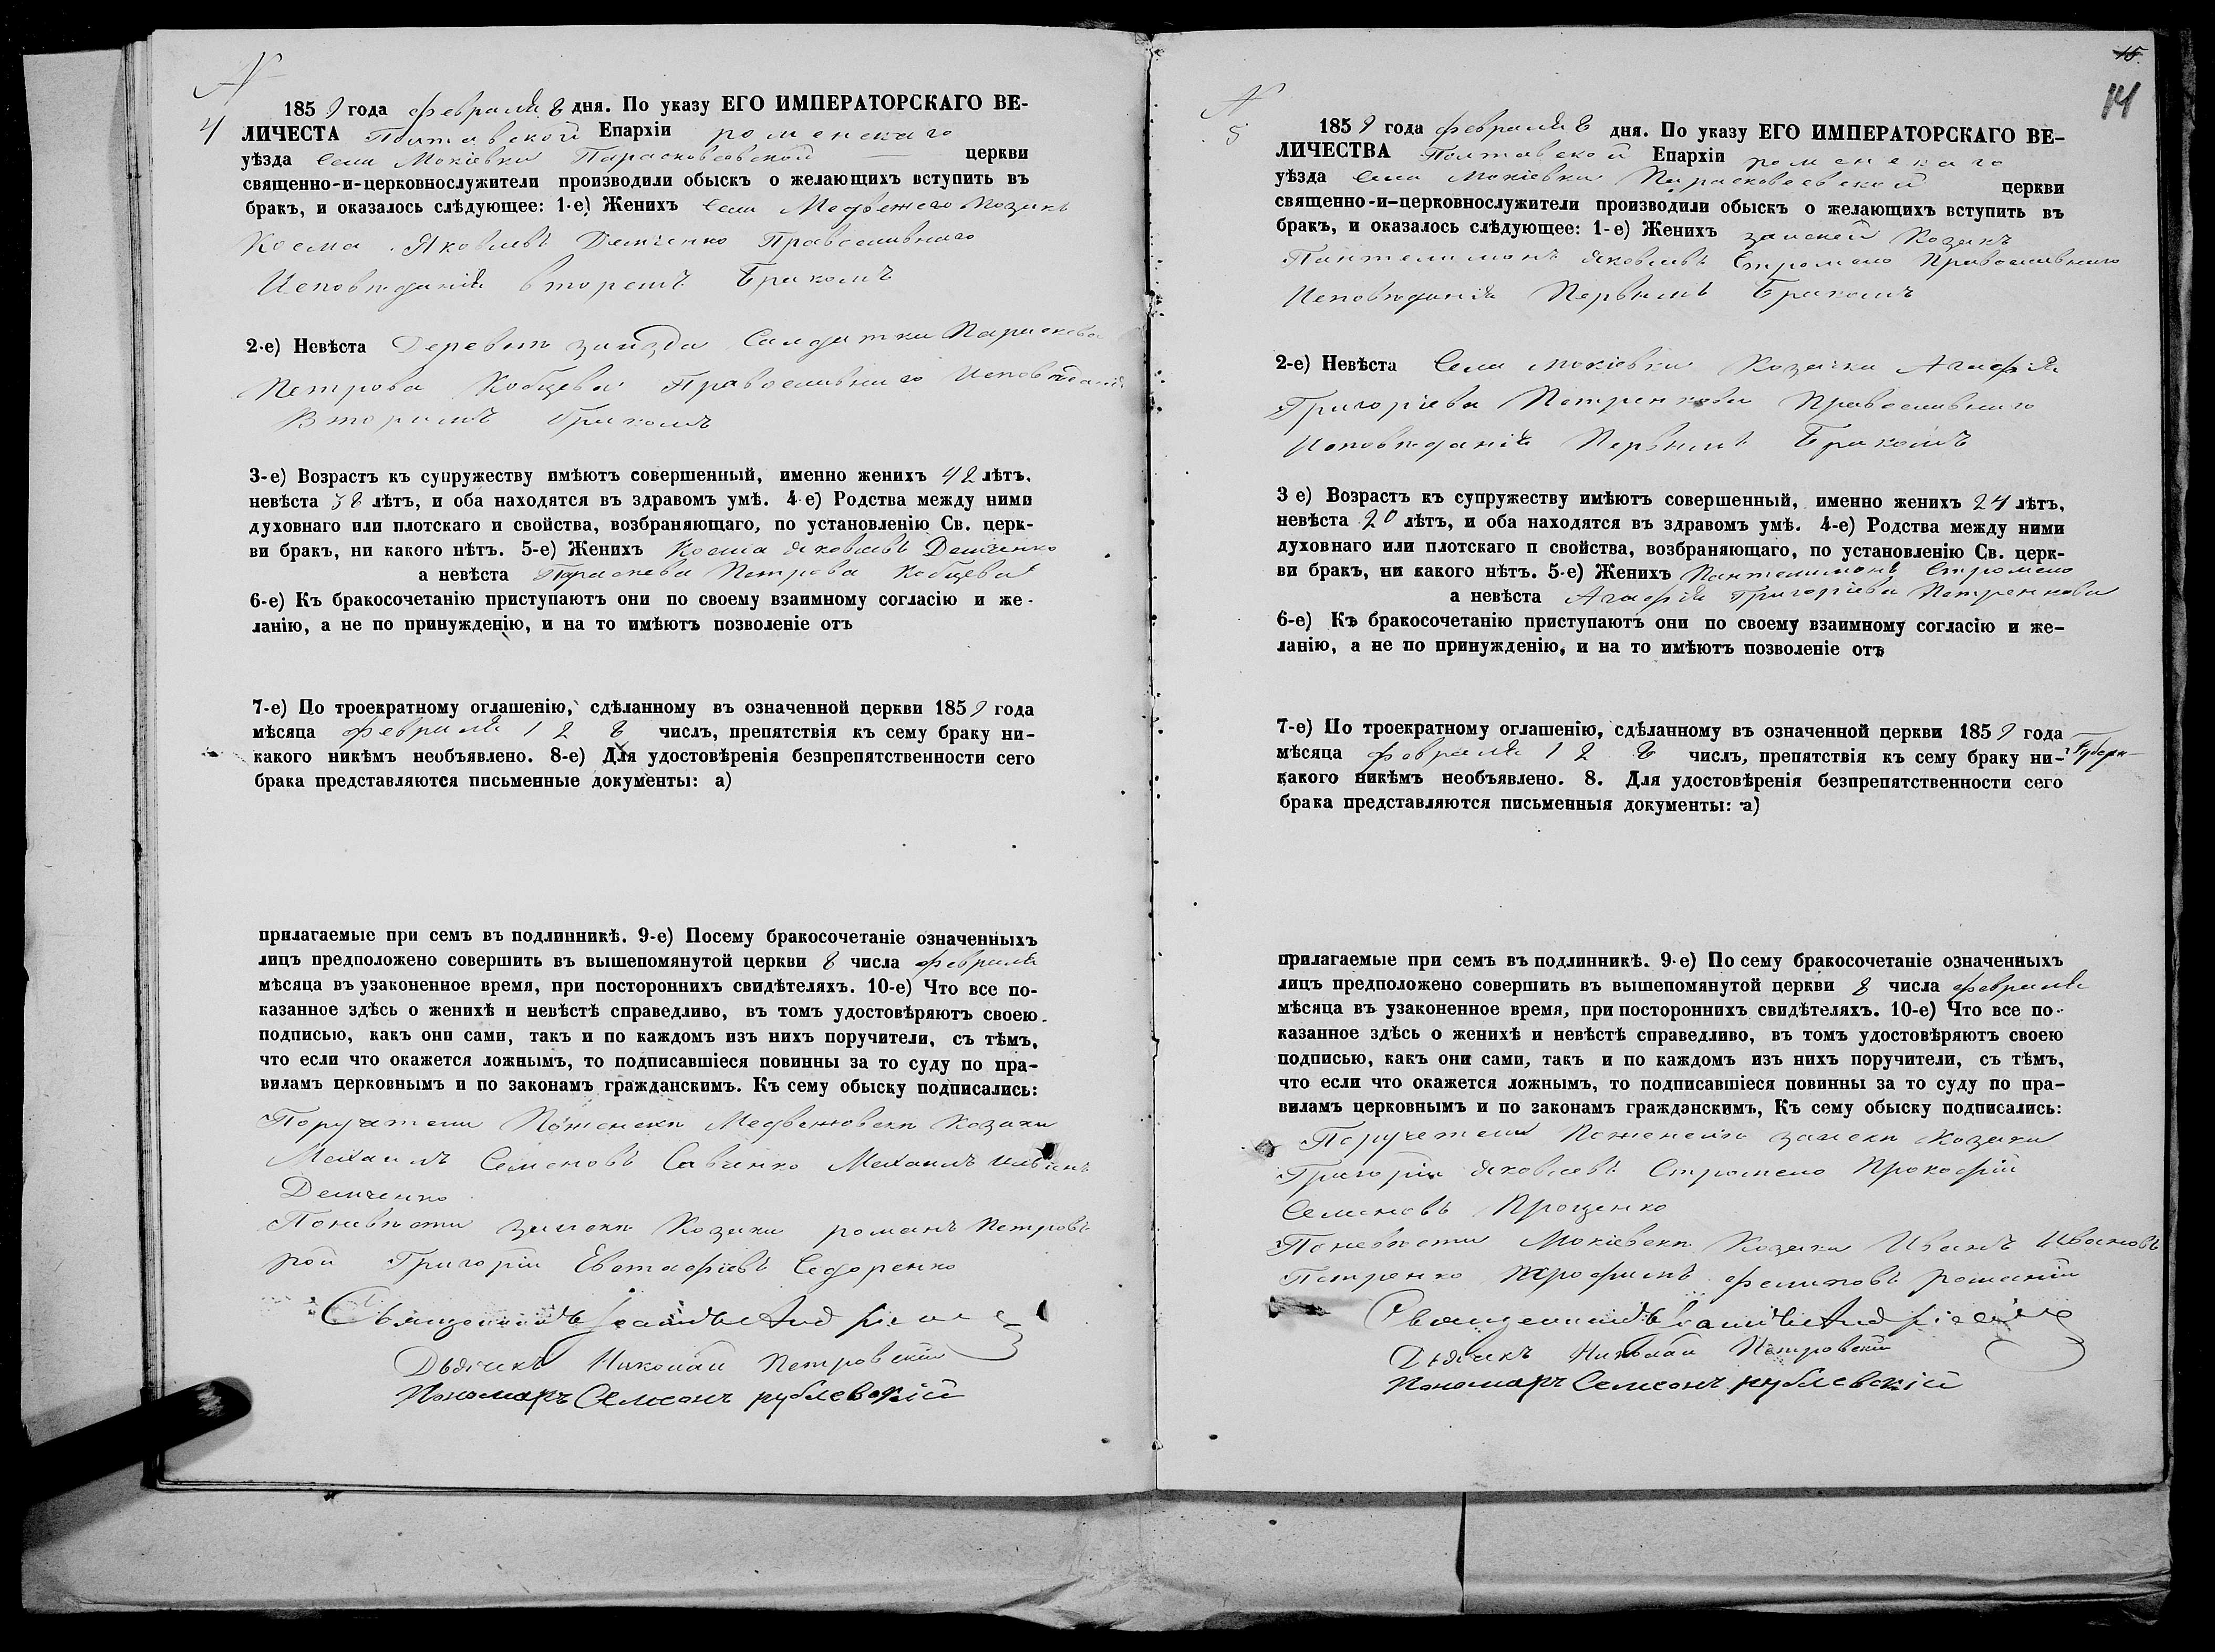 №
4
1859 года февраля 8 дня. По указу ЕГО ИМПЕРАТОРСКАГО ВЕ-
ЛИЧЕСТА Полтавской Епархіи роменскаго
уѣзда села Мокіевки Парасковеевской церкви
священно-и-церковнослужители производили обыскъ о желающихъ вступить въ
бракъ, и оказалось слѣдующее: 1-е) Женихъ села Медвежего Козакъ
Косма Яковлевъ Демченко Православнаго
Исповѣданія вторымъ Бракомъ
2-е) Невѣста Деревни Салдатка Параскева
Петрова Кобцева Православнаго Исповѣданія
Вторимъ бракомъ
3-е) Возрастъ къ супружеству имѣютъ совершенный, именно женихъ 42 лѣтъ.
невѣста 38 лѣтъ, и оба находятся въ здравомъ умѣ. 4-е) Родства между ними
духовнаго или плотскаго и свойства, возбраняющаго, по установленію Св. церк-
ви бракъ, ни какого нѣтъ. 5-е) Женихъ Косма Яковлевъ Демченко
а невѣста Параскева Петрова Кобцева
6-е) Къ бракосочетанію приступаютъ они по своему взаимному согласію и же-
ланію, а не по принужденію, и на то имѣютъ позволеніе отъ
7-е) По троекратному оглашенію, сдѣланному въ означенной церкви 1859 года
мѣсяца февраля 1 2 8 числъ, препятствія къ сему браку ни-
какого никѣмъ необъявлено. 8-е) Для удостовѣренія безпрепятственности сего
брака представляются письменные документы: а)
прилагаемые при семъ въ подлинникѣ. 9-е) Посему бракосочетаніе означенныхъ
лицъ предположено совершить въ вышепомянутой церкви 8 числа февраля
мѣсяца въ узаконенное время, при постороннихъ свидѣтеляхъ. 10-е) Что все по-
казанное здѣсь о женихѣ и невѣстѣ справедливо, въ томъ удостовѣряютъ своею
подписью, какъ они сами, такъ и по каждомъ изъ нихъ поручители, съ тѣмъ,
что если что окажется ложнымъ, то подписавшіеся повинны за то суду по пра-
виламъ церковнымъ и по законамъ гражданскимъ. Къ сему обыску подписались:
Поручатели Козаки
Михаилъ Семеновъ Савченко Михаилъ
Демченко
Поневѣсти Козаки романъ Петровъ
рой Григорій Евстафіевъ Седоренко
Священникъ
Дьячекъ Николай Петровскій
Пономаръ Семеонъ рублевскій
15.
14
№
5
1859 года февраля 8 дня. По указу ЕГО ИМПЕРАТОРСКАГО ВЕ-
ЛИЧЕСТВА Полтавской Епархіи роменскаго
уѣзда села Мокіевки Парасковеевской церкви
священно-и-церковнослужители производили обыскъ о желающихъ вступить въ
бракъ, и оказалось слѣдующее: 1-е) Женихъ Козакъ
Пантелимонъ Яковлевъ Стромело Православнаго
Исповѣданія Первымъ Бракомъ
2-е) Невѣста Села Мокіевки Козачка Агафія
Григоріева Петренкова Православнаго
Исповѣданія Первымъ Бракомъ
3 е) Возрастъ къ супружеству имѣютъ совершенный, именно женихъ 24 лѣтъ,
невѣста 20 лѣтъ, и оба находятся въ здравомъ умѣ. 4-е) Родства между ними
духовнаго или плотскаго п свойства, возбраняющаго, по установленію Св. церк-
ви бракъ, ни какого нѣтъ. 5-е) Женихъ Пантелимонъ Стромело
а невѣста Агафія Григоріева Петренкова
6-е) Къ бракосочетанію приступаютъ они по своему взаимному согласію и же-
ланію, а не по принужденію, и на то имѣютъ позволеніе отъ
7-е) По троекратному оглашенію, сдѣланному въ означенной церкви 1859 года
мѣсяца февраля 1 2 8 числъ, препятствія къ сему браку ни-
какого никѣмъ необъявлено. 8. Для удостовѣренія безпрепятственности сего
брака представляются письменныя документы: а)
прилагаемые при семъ въ подлинникѣ. 9-е) По сему бракосочетаніе означенныхъ
лицъ предположено совершить въ вышепомянутой церкви 8 числа февраля
мѣсяца въ узаконенное время, при постороннихъ свидѣтеляхъ. 10-е) Что все по-
казанное здѣсь о женихѣ и невѣстѣ справедливо, въ томъ удостовѣряютъ своею
подписью, какъ они сами, такъ и по каждомъ изъ нихъ поручители, съ тѣмъ,
что если что окажется ложнымъ, то подписавшіеся повинны за то суду по пра-
виламъ церковнымъ и по законамъ гражданскимъ, Къ сему обыску подписались:
Поручетели Козаки
Григорій Яковлевъ Стромело Прокофій
Семеновъ Проценко
Поневѣсти Мокіевски Козаки Иванъ Ивановъ
Петренко Трофимъ
Священникъ
Дьячекъ Николай Петровскій
Пономаръ Семеонъ рублевскій